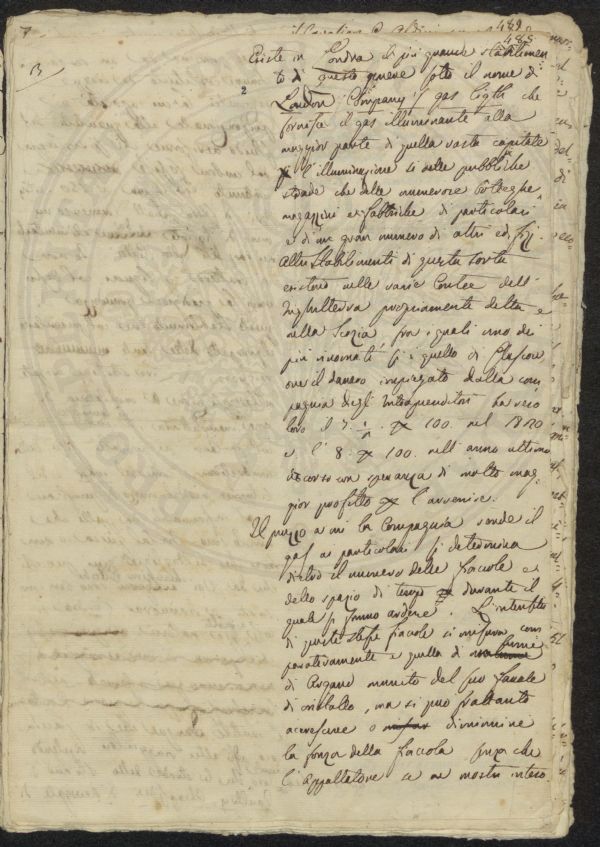 489.
485.
3
2
Esiste in Londra il più grande stabilimen
to di questo genere sotto il nome di
London Company / gas ligth che
fornisce il gas illuminante alla
maggior parte di quella vasta capitale
l'illuminazione si delle pubbliche
strade che delle numerose botteghe
magazzini e fabbriche di particolari
e di un gran numero di altri edifizj.
Altri stabilimenti di questa sorta
esistono nelle varie Contee dell'
Inghilterra propriamente detta e
nella Scozia, fra i quali uno dei
più rinomati si è quello di Glascow
ove il danaro impiegato dalla com
pagnia degli Intraprenditori ha reso
loro il 7. 100. nel 1820
e l' 8. 100. nell' anno ultimo
discorso con speranza di molto mag
gior profitto l'avvenire.
Il prezzo a cui la Compagnia vende il
gas ai particolari si determina
dietro il numero delle fiaccole e
dello spazio di tempo durante il
quale si fanno ardere. L'intensità
di queste stesse fiaccole si misura com
parativamente a quella di lume
di Argand munito del suo fanale
di cristallo, ma si può frattanto
accrescere o diminuire
la forza della fiaccola senza che
l'appaltatore se ne mostri inteso